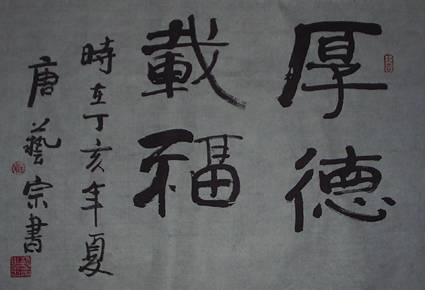 厚德
載福
時在丁亥年夏
唐藝宗書